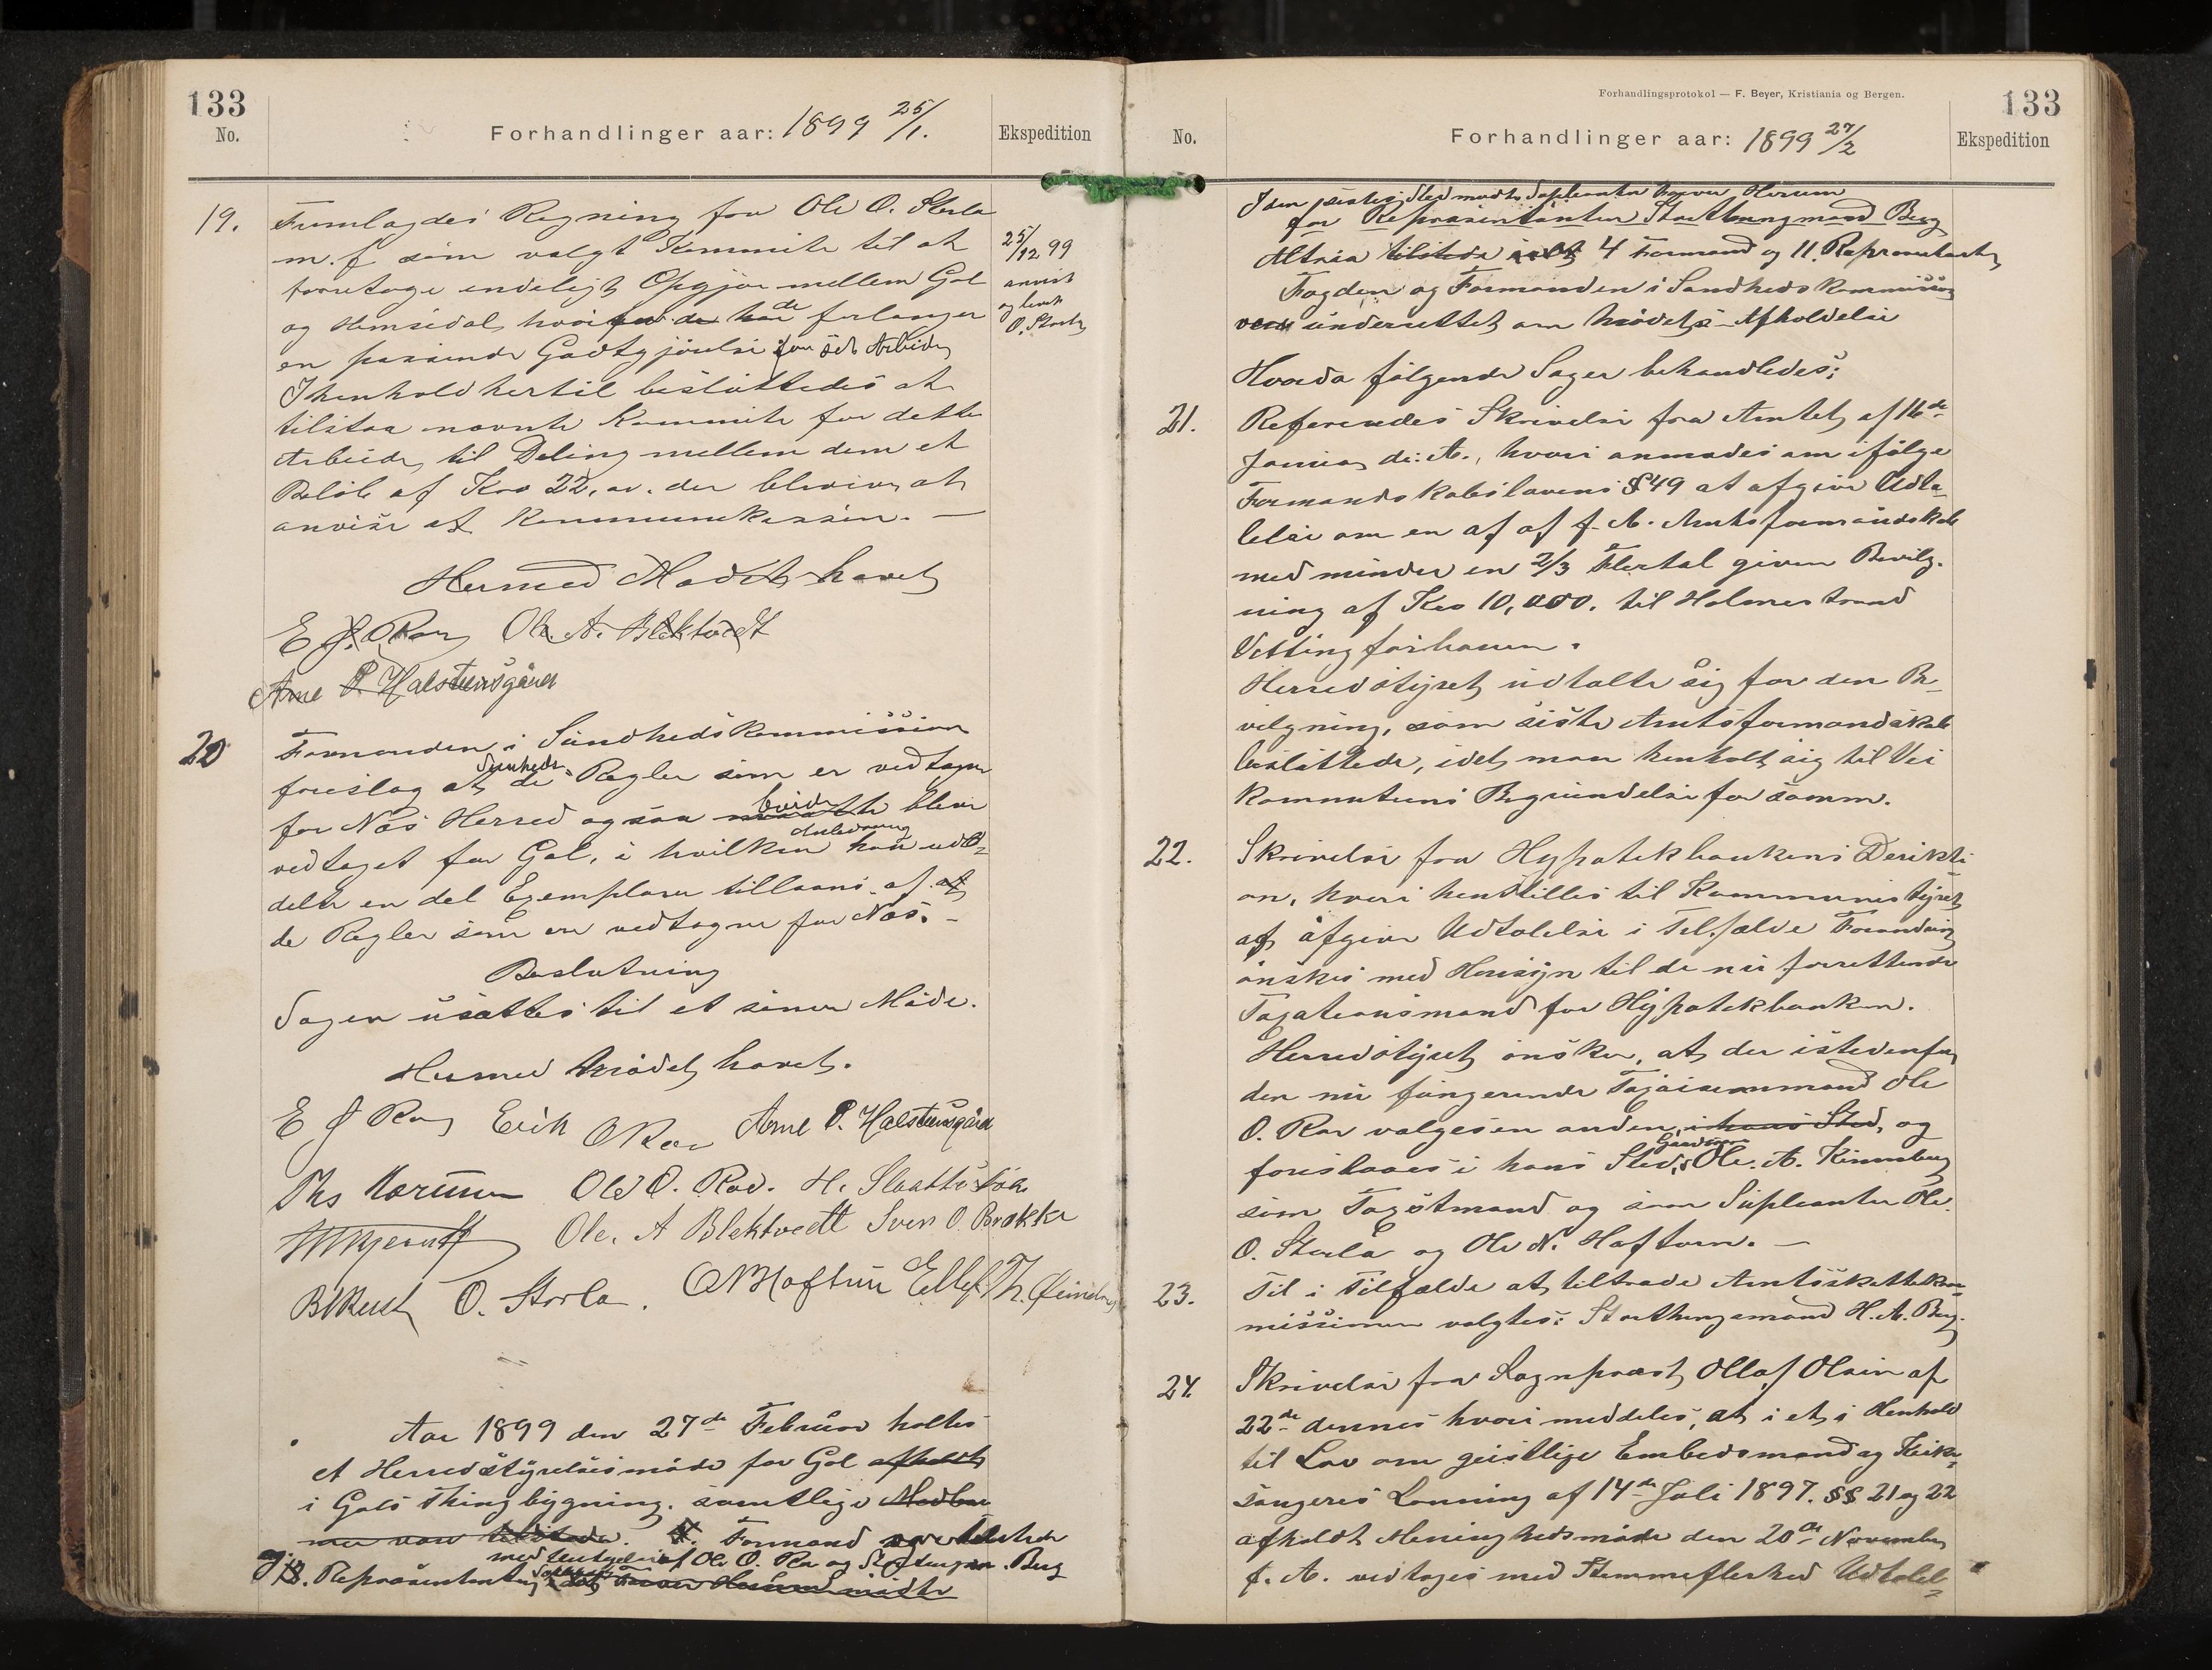 133
No.
Forhandlinger aar: 1899 25/1.
Ekspedition
19. Fremlagdes Regning fra Ole O. Storla
m. fl som valgt Kommite til at
foretage endeligt Opgjør mellem Gol
og Hemsedal, hvorfor de har de forlanger
en passende Godtgjørelse for sit Arbeide
I henhold hertil besluttedes at
tilstaa nævnte Kommite for dette
Arbeide til Deling mellem dem et
Beløb af Kro 22, der bliver at
anvise af Kommunekassen. —
25/12 99
anvist
og sendt
O. Storla
Hermed Mødet hævet
E J. Roe Ole. A. Blektvedt
Arne P. Halstensgård
20 Formanden i Sundhedskommission
foreslog at de Sunheds- Regler som er vedtagen
for Næs Herred ogsaa maatte burde blive
vedtaget for Gol, i hvilken Anledning han udd-
delte en del Exemplarer tillaans af at
de Regler som er vedtagne for Næs. —
Beslutning
Sagen usattes til et senere Møde.
Hermed Mødet hævet.
E J Roe Erik O Roe Arne P. Halstensgård
Ths Hørüm Ole O. Roe. H. Slaatto
Ole. A Blektvedt Sven O. Brakke
O. Storla. O N Haftun Ellef Th.
Aar 1899 den 27de Februar holtes
et Herredstyrelsesmøde for Gol afholdt
i Gols Thingbygning. samtlige Medlem
mer var tilstede. 4. Formænd var tilstede
og 13. Repræsentanter med Undtagelse af Ole O. Roe og Storthingm. Berg
Iver Hørum mødte
Forhandlingsprotokol — F. Beyer, Kristiania og Bergen.
133
No.
Forhandlinger aar: 1899 27/2
Ekspedition
I den sistes Sted mødte Supleanten Iver Hørum
for Repræsentanten Storthingmand Berg
Altsaa tilstede ialt 4 Formænd og 11. Repræsentanter
Fogden og Formanden i Sundhedskommission
var underrettet om Mødets Afholdelse
Hvorda følgende Sager behandledes:
21. Refereredes Skrivelse fra Amtet af 16de
Januar d: A., hvori anmodes om ifølge
Formandskabslovens § 49 at afgive Udta-
lelse om en af af f. A. Amtsformandskab
med mindre en 2/3 Flertal given Bevilg-
ning af Kro 10,000. til Holmestrand
Vittingfosbanen.
Herredstyret udtalte sig for den Be-
vilgning, som siste Amtsformandskab
besluttede, idet man henholt sig til Vei
kommiteens Begrundelse for samme.
22. Skrivelse fra Hypotekbankens Direkti-
on, hvori henstilles til Kommunestyret
at afgive Udtalelse i Tilfælde Forandring
ønskes med Hensyn til de nu forrettende
Taxationsmænd for Hypotekbanken.
Herredstyret ønsker, at der istedenfor
den nu fungerende Taxationsmand Ole
O. Roe valges en anden, i hans Sted, og
foreslaaes i hans Sted, Gaardbruger Ole. A. Kinneberg
som Taxstmand og som Supleanter Ole.
O. Storla og Ole N. Haftorn. —
23. Til i Tilfælde at tiltræde Amtsskattekom-
missionen valgtes: Storthingsmand H. A. Berg.
24. Skrivelse fra Sognepræst Ollaf Olsen af
22de dennes hvori meddeles, at i et, i Henhold
til Lov om geistlige Embedsmænd og Kirke-
sangeres Lønning af 14de Juli 1897. §§ 21 og 22
afholdt Menighedsmøde den 20de November
f. A. vedtoges med Stemmeflerhed Udtalel-